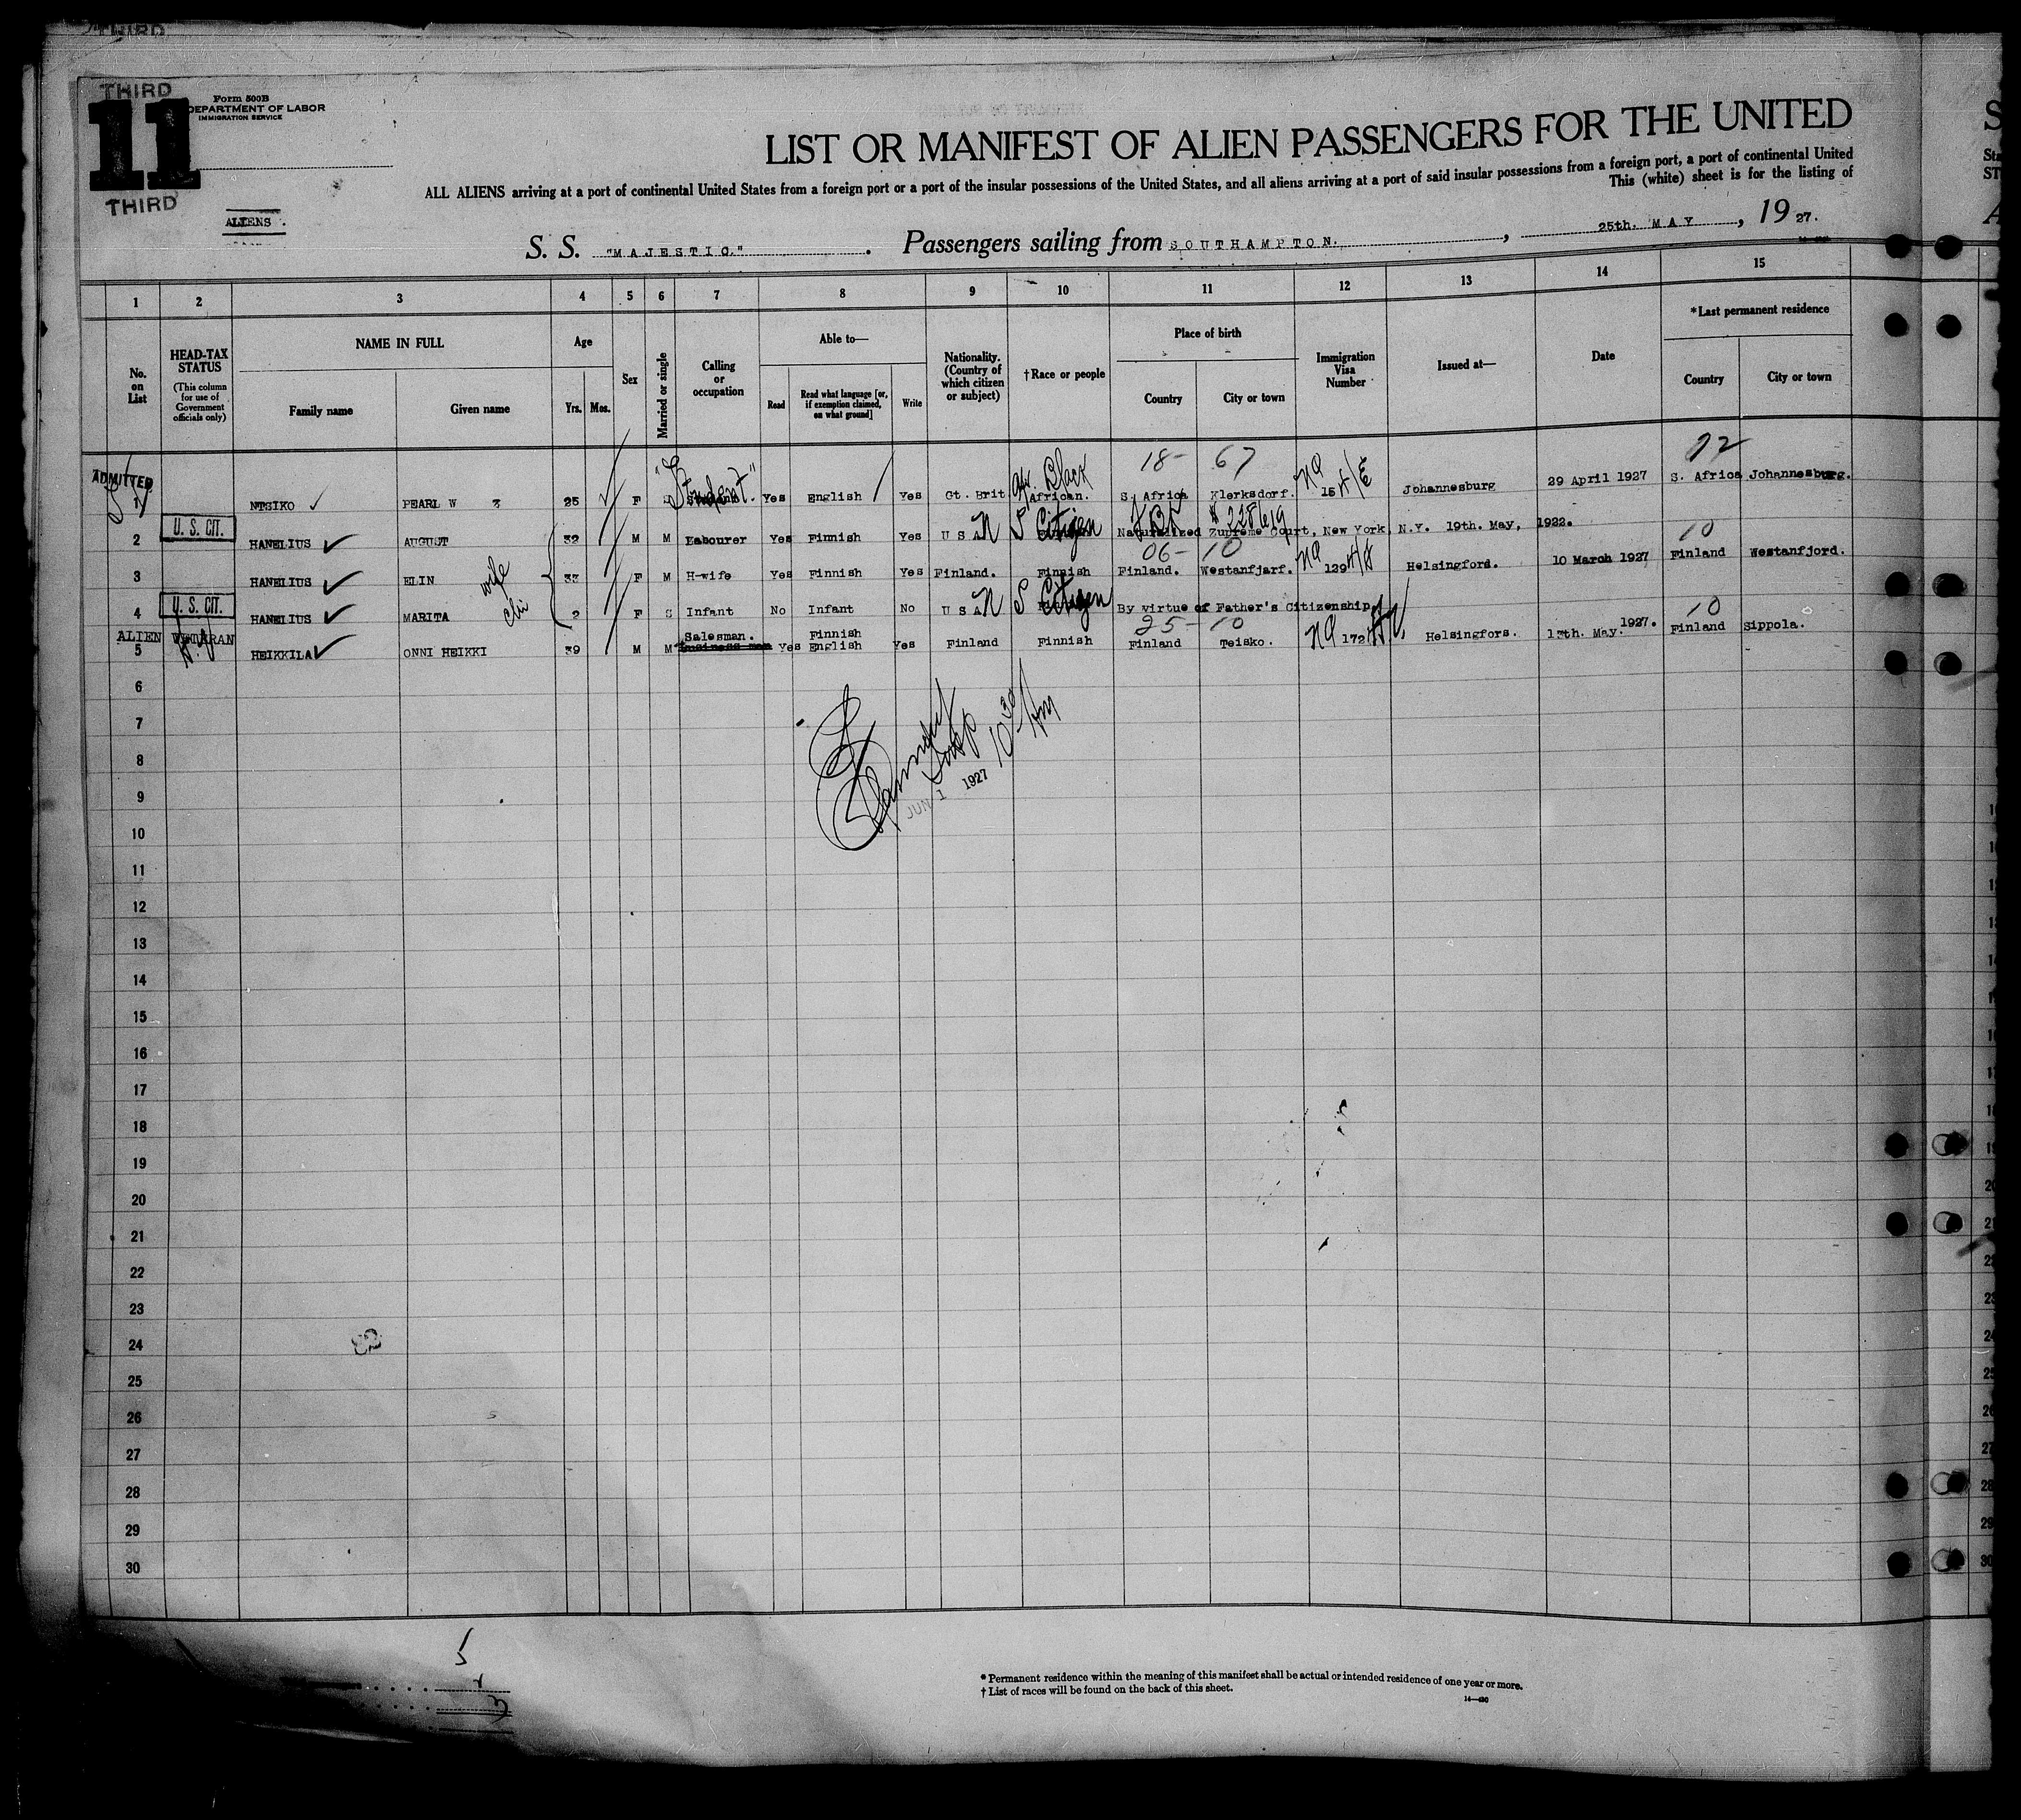 THIRD
THIRD
11
THIRD
Form 500B
DEPARTMENT OF LABOR
IMMIGRATION SERVICE
ALIENS.
LIST OR MANIFEST OF ALIEN PASSENGERS FOR THE UNITED
ALL ALIENS arriving at a port of continental United States from a foreign port or a port of the insular possessions of the United States, and all aliens arriving at a port of said insular possessions from a foreign port, a port of continental United
This (white) sheet is for the listing of
S. S. "MAJESTIC." Passengers sailing from SOUTHAMPTON. , 25th. MAY , 1927.
1 2 3 4 5 6 7 8 9 10 11 12 13 14 15
No. on List
HEAD-TAX STATUS
(This column for use of Government officials only)
NAME IN FULL
Family name Given name
Age
Yrs. Mos.
Sex
Married or single
Calling or occupation
Able to—
Read
Read what language [or, if exemption claimed, on what ground]
Write
Nationality. (Country of which citizen or subject)
†Race or people
Place of birth
Country City or town
Immigration Visa Number
Issued at—
Date
*Last permanent residence
Country City or town
ADMITTED
"Student" Af. Black 18- 67 NQ
1 NTSIKO PEARL W 25 F S Student. Yes English Yes Gt. Brit African. S. Africa Klerksdorf. 15 Johannesburg 29 April 1927 S. Africa Johannesburg.
U. S. CIT.
2 HANELIUS AUGUST 32 M M Labourer Yes Finnish Yes U S A N S Citizen Naturalized Zupreme Court, New York, N.Y. 19th. May, 1922. 10
06- 10 NQ
3 HANELIUS ELIN wife 33 F M H-wife Yes Finnish Yes Finland. Finnish Finland. Westanfjarf. 129 Helsingford. 10 March 1927 Finland Westanfjord.
U. S. CIT.
4 HANELIUS MARITA chi 2 F S Infant No Infant No U S A N S Citizen By virtue of Father's Citizenship 10
ALIEN VETERAN
25- 10 NQ
5 HEIKKILA ONNI HEIKKI 39 M M Salesman. Business man Yes Finnish English Yes Finland Finnish Finland Teisko. 172 Helsingfors. 17th. May. 1927. Finland Sippola.
JUN 1 1927 10 30 AM
6
7
8
9
10
11
12
13
14
15
16
17
18
19
20
21
22
23
24
25
26
27
28
29
30
5
* Permanent residence within the meaning of this manifest shall be actual or intended residence of one year or more.
† List of races will be found on the back of this sheet.
14—430